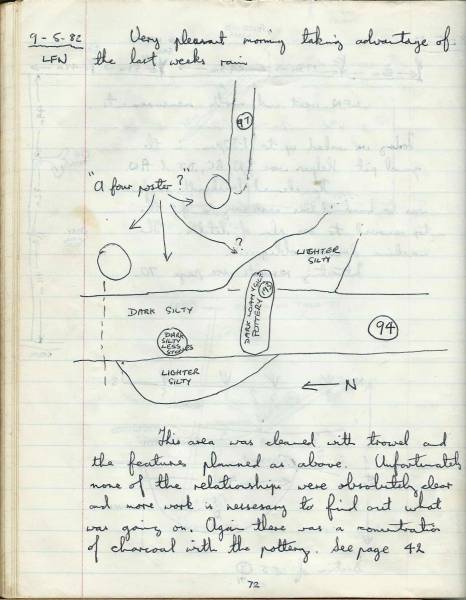 9-5-82
LFN
Very pleasant morning taking advantage of
the last weeks rain
97
"A four poster?"
?
LIGHTER
SILTY
DARK SILTY
DARK LOAMY SILT
POTTERY
94
DARK
SILTY
LESS
STONES
LIGHTER
SILTY
N
This area was cleaned with trowel and
the features planned as above. Unfortunately
none of the relationships were absolutely clear
and more work is nessesary to find out what
was going on. Again there was a concentration
of charcoal with the pottery. See page 42
72